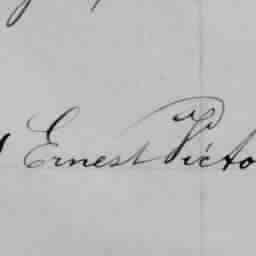 Ernest Victo